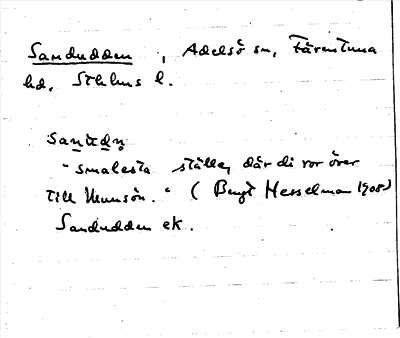 Sandudden, Adelsö sn, Färentuna
hd, Sthlms l.
"smalesta ställe, där di ror över
till Munsön." (Bengt Hesselman 1908)
Sandudden ek.